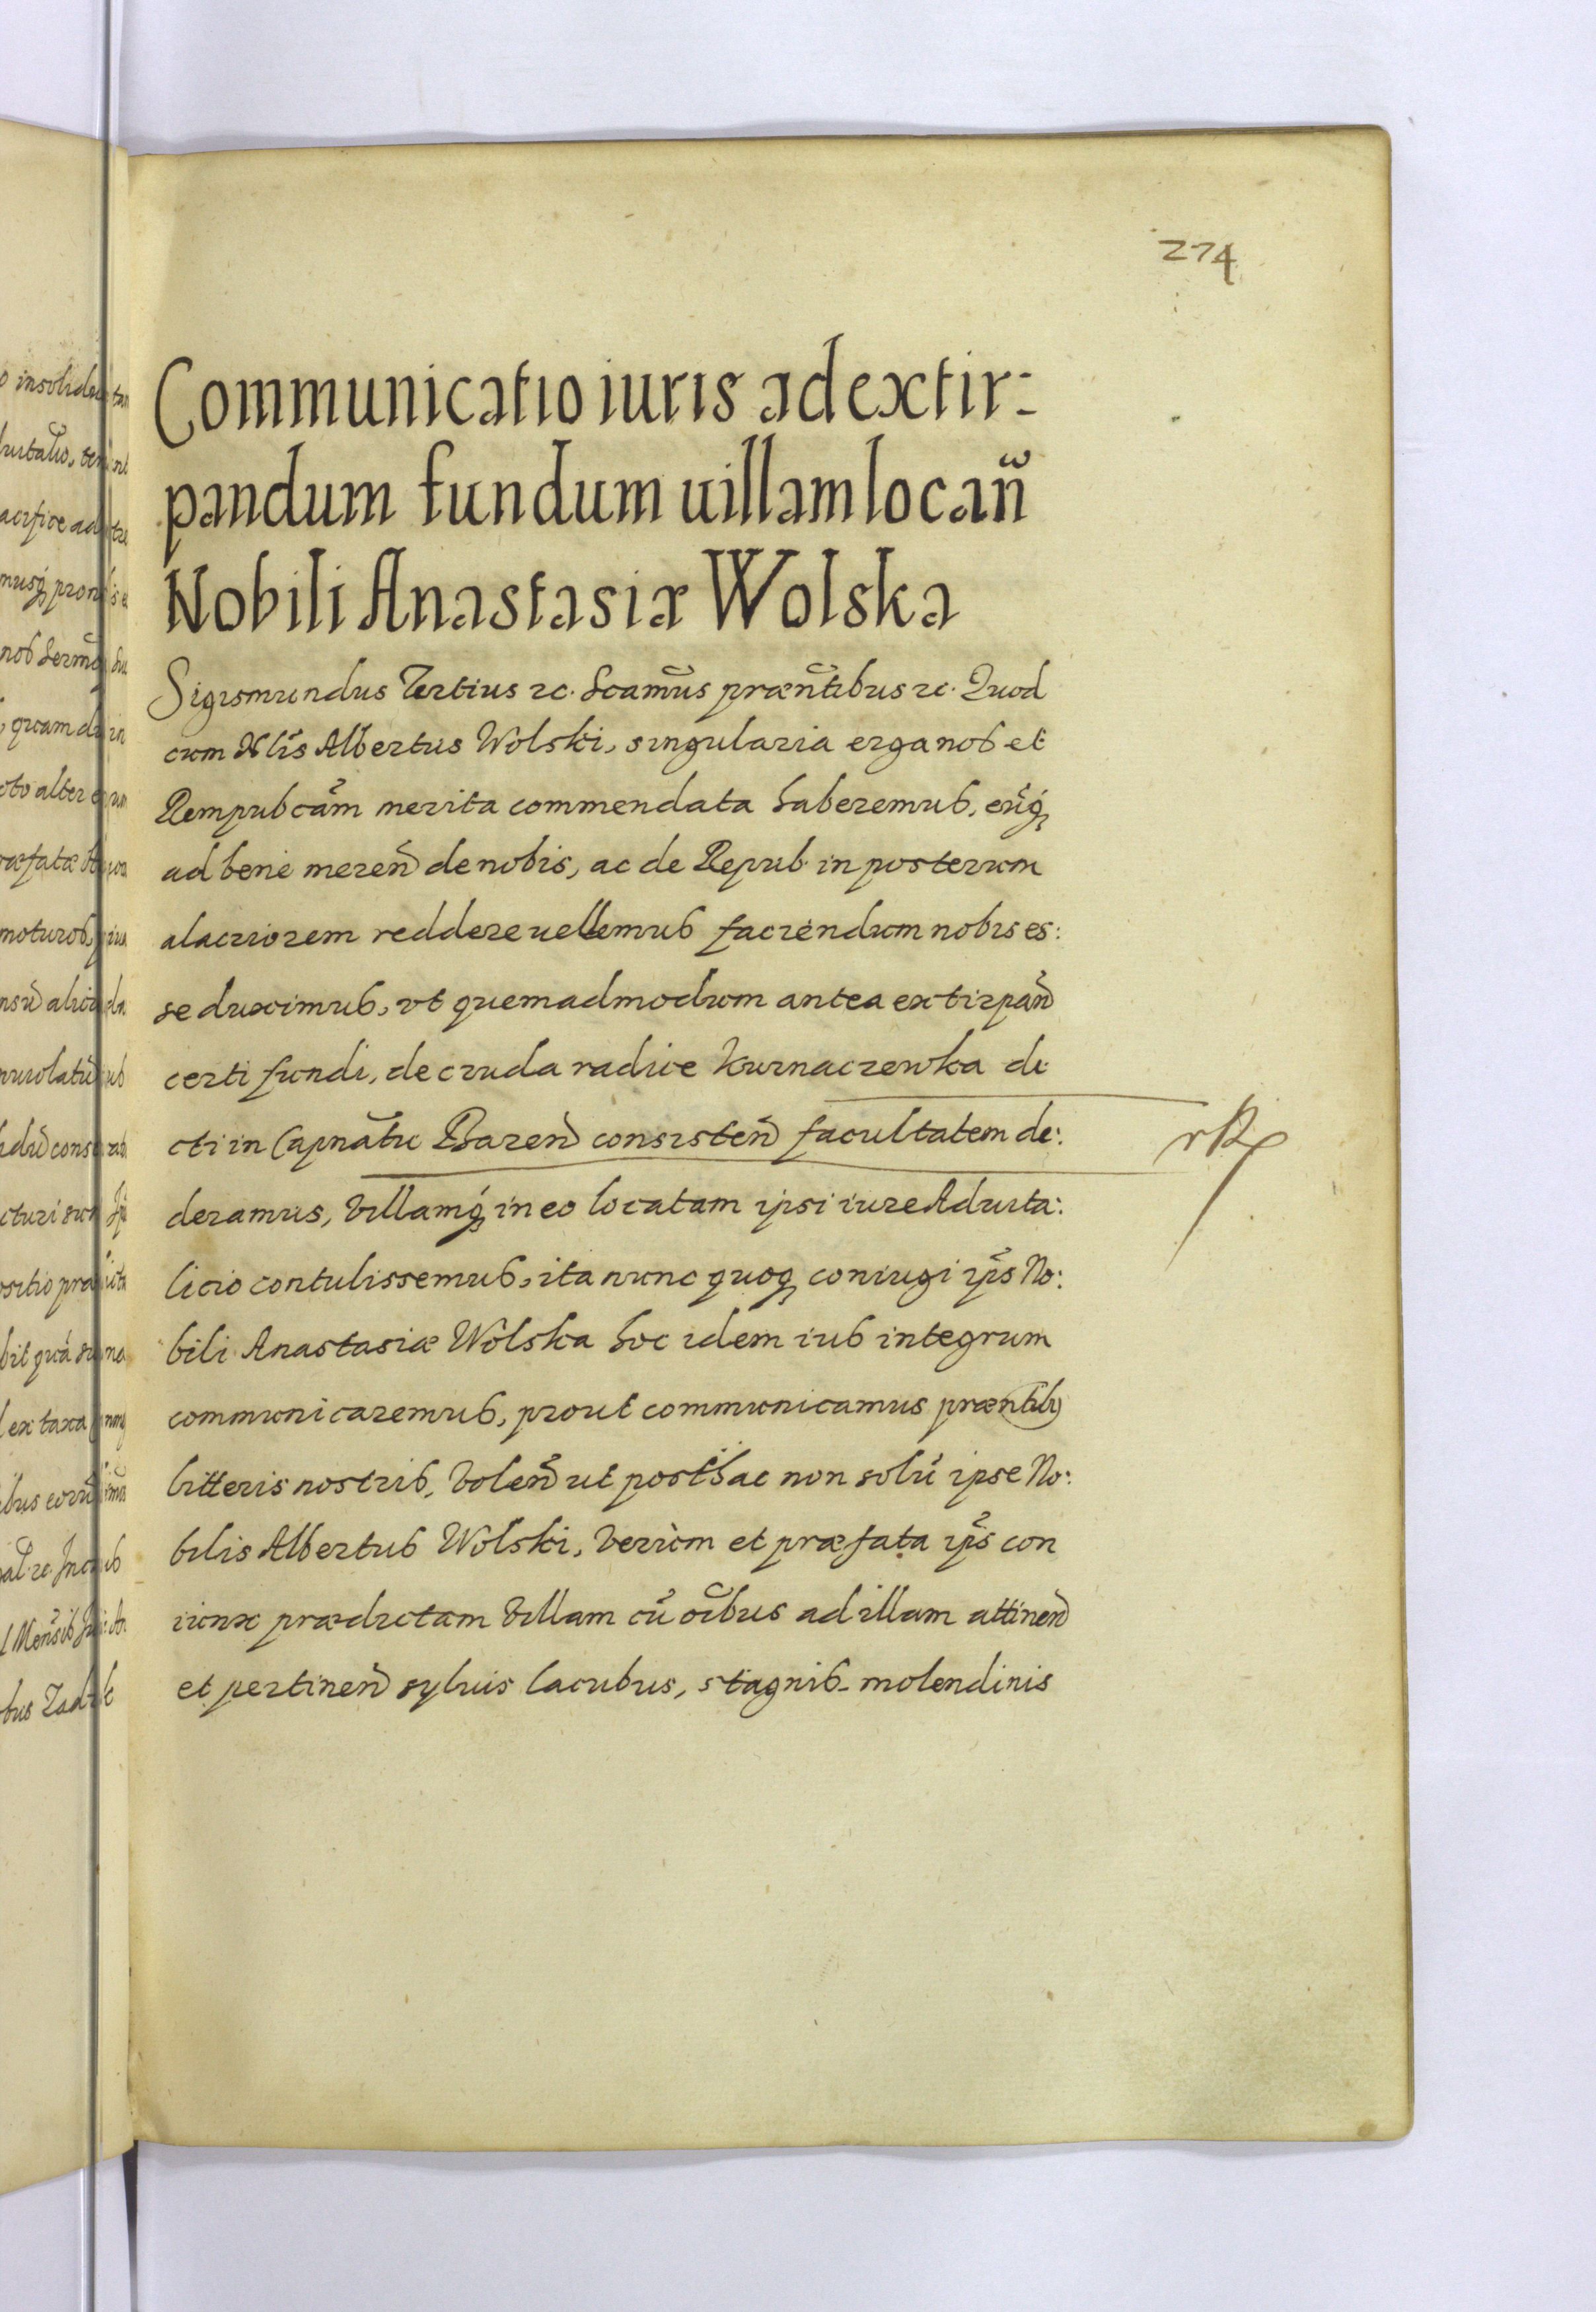 274
Communicatio iuris ad extir-
pandum fundum uillam locan̄
Nobili Anastasiæ Wolska
Sigismundus Tertius &c. Scam̄us præn̄tibus &c. Quod
cum Nl̄is Albertus Wolski, singularia erga nos et
Rempubcam̄ merita commendata haberemus, eūq́ꝫ
ad bene meren̄d de nobis, ac de Repub in posterum
alacriorem reddere uellemus faciendum nobis es:
se duximus, vt quemadmodum antea extirpan̄d
certi fundi, de cruda radice Kurnaczewka di
cti in Capn̄atu Baren̄ consisten̄ facultatem de:
deramus, Villamq́ꝫ in eo locatam ipsi iure Aduita:
licio contulissemus, ita nunc quoqꝫ coniugi ip̄s No:
bili Anastasiæ Wolska hoc idem ius integrum
communicaremus, prout communicamus præntibꝫ
litteris nostris, Volen̄ ut posthac non solū ipse No:
bilis Albertus Wolski, Verùm et præfata ip̄s con
iunx prædictam Villam cū oībus ad illam attinen̄
et pertinen̄ syluis lacubus, stagnis molendinis